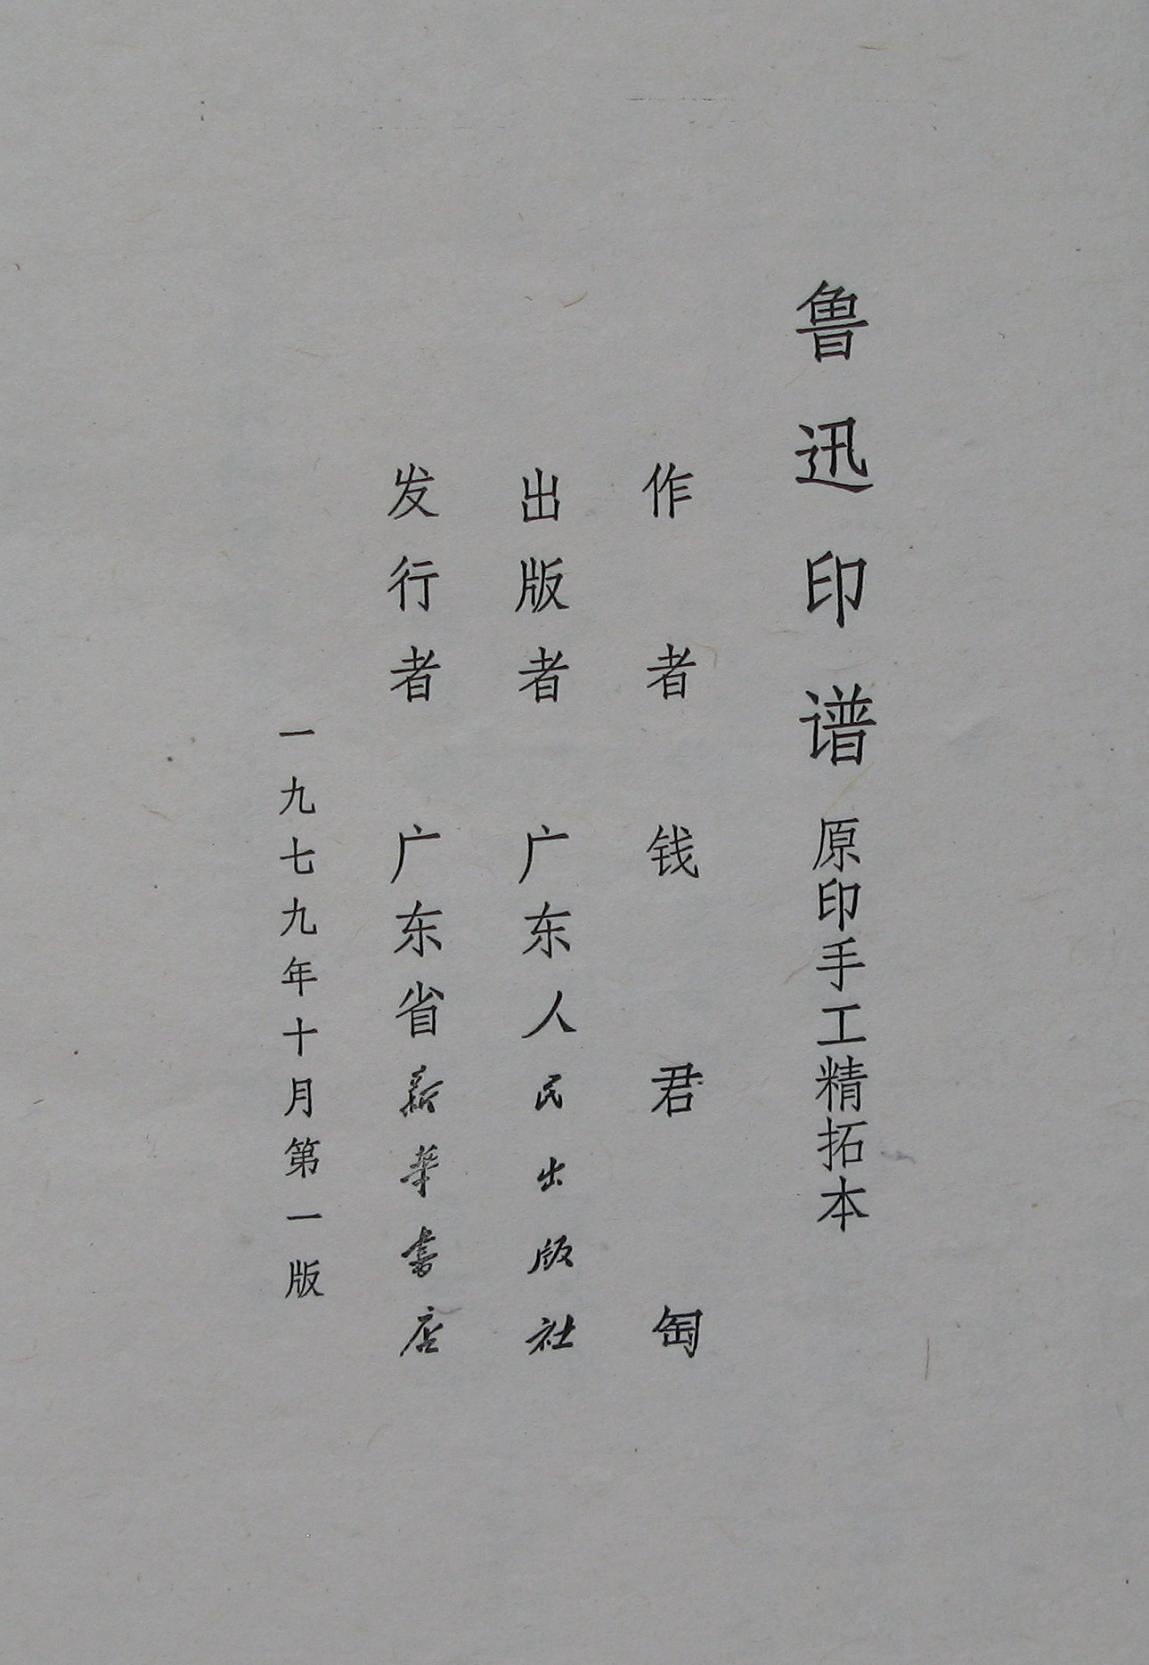 鲁迅印谱 原印手工精拓本
作者 钱君匋
出版者 广东人民出版社
发行者 广东省新华书店
一九七九年十月第一版